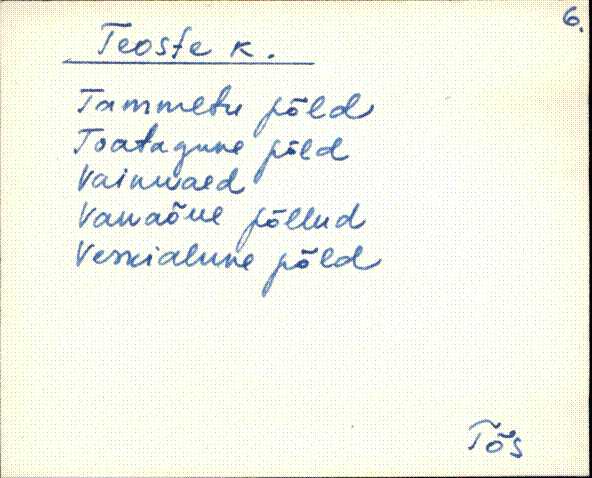 6.
Teoste k.
Tammetu põld
Toatagune põld
Vainuaed
Vanaõue põllud
Veskialune põld
Tõs